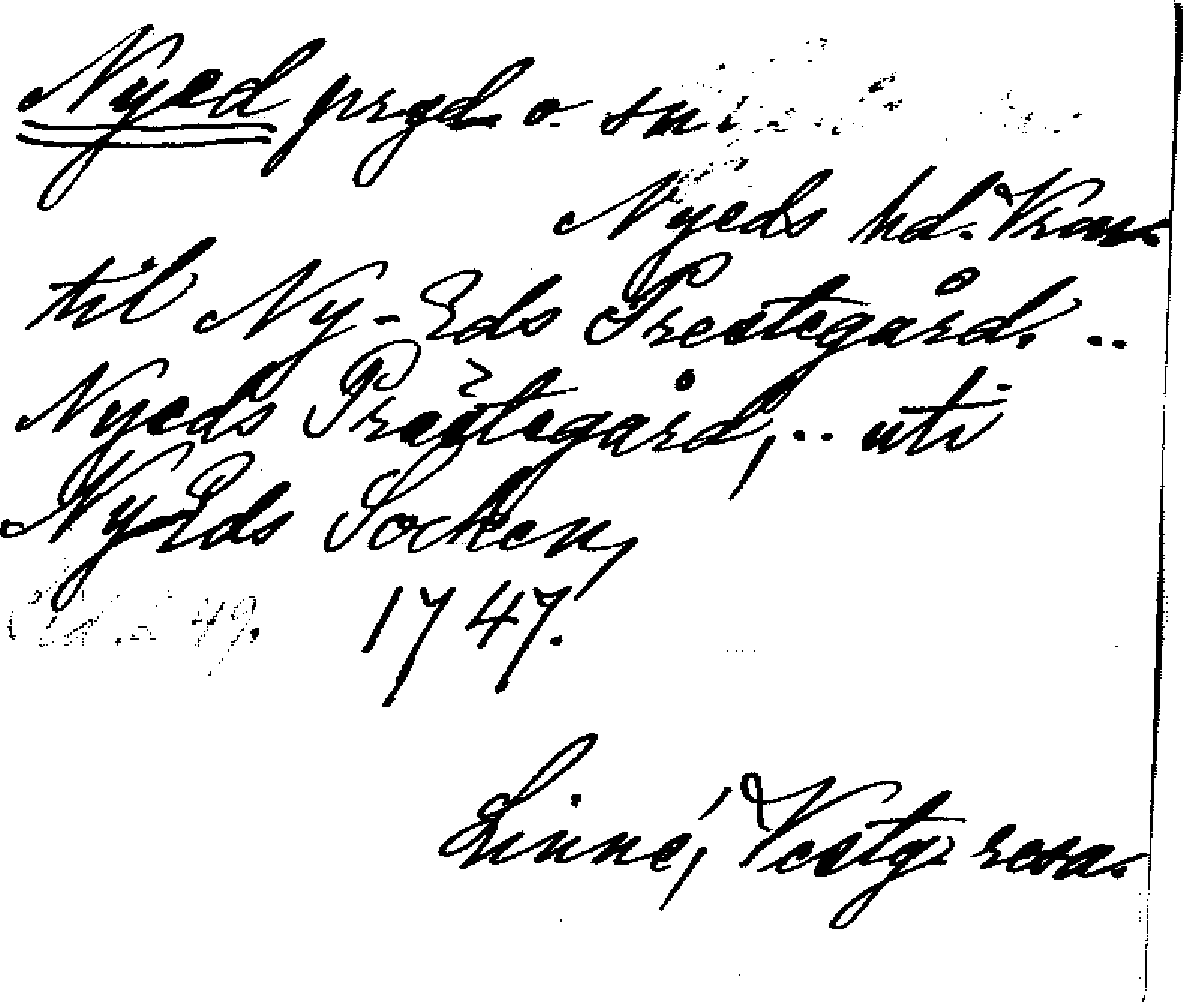 Nyed prgd o sn
Nyeds hd. Vrml.
til Ny-Eds Prestegård. ..
Nyeds Prästegård, .. uti
Ny Eds Socken,
49. 1747.
Linné, Vestgr resa.